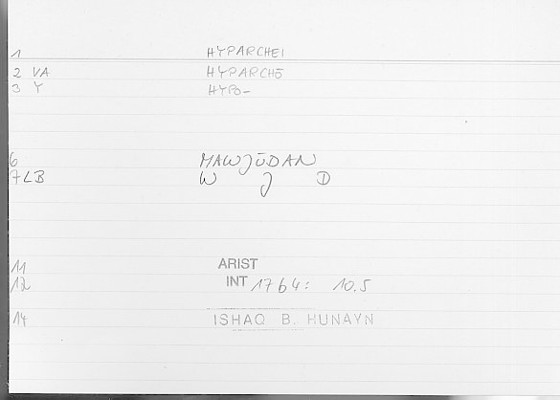 1 HYPARCHEI
2 VA HYPARCHŌ
3 Y HYPO-
6 MAWJŪDAN
7 LB W J D
11 ARIST
12 INT 17b4: 10.5
14 ISHAQ B. HUNAYN